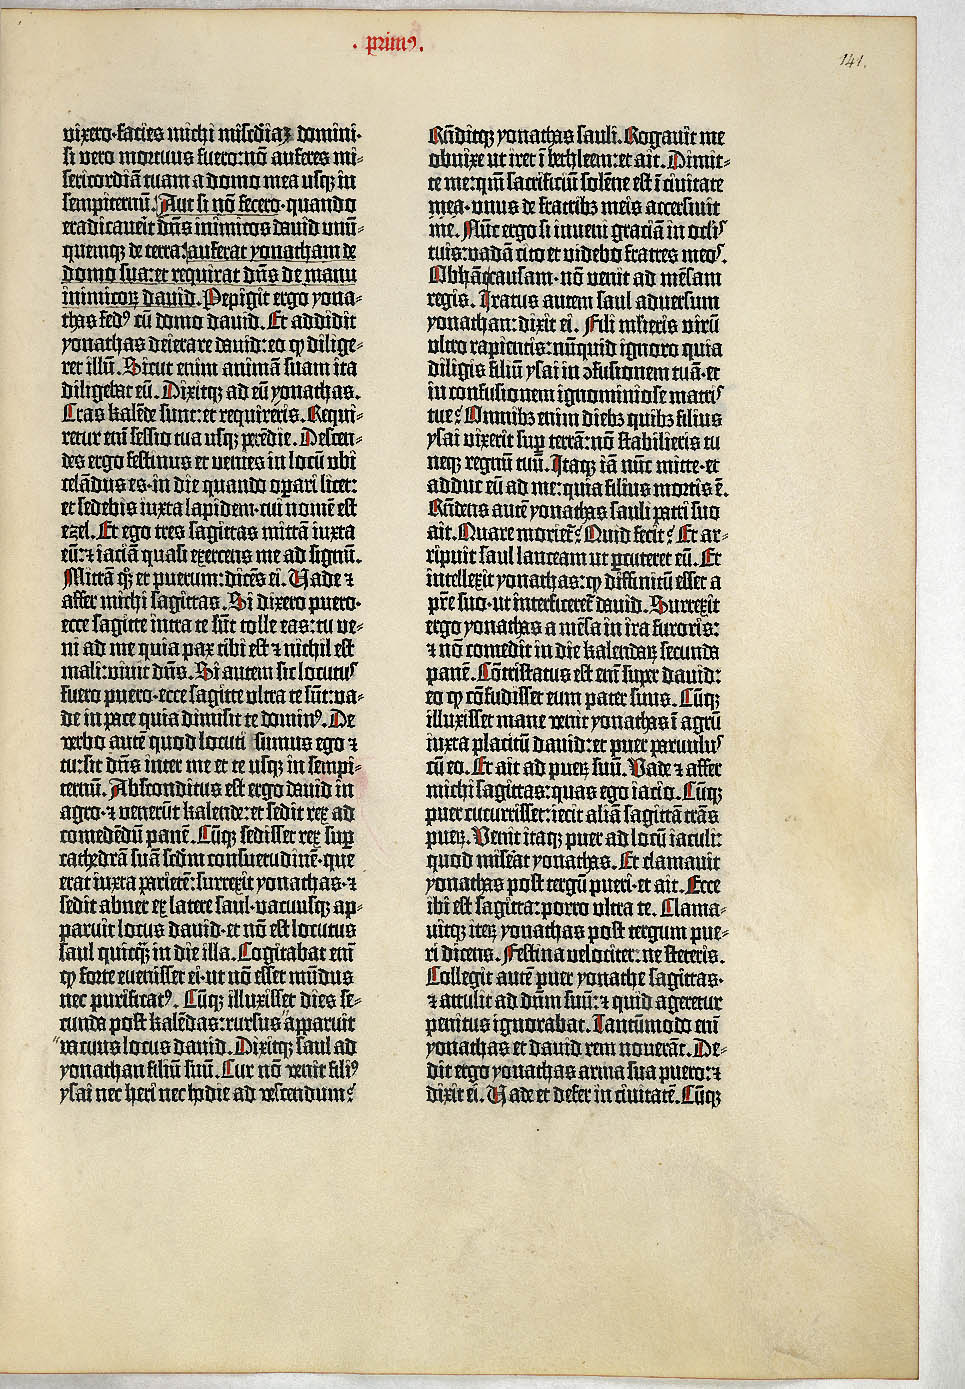 · primꝰ.
141.
vixero·facies michi mis̄cd̄iaꝫ domini·
si vero mortuus fuero: nō auferes mi-
sericordiā tuam a domo mea usqꝫ in
sempiternū. Aut si nō fecero·quando
eradicaverit dn̄s inimicos david unū-
quemqꝫ de terra: auferat yonatham de
domo sua: et requirat dn̄s de manu
inimicoꝝ david. Pepigit ergo yona-
thas fedꝰ cū domo david. Et addidit
yonathas deierare david: eo qꝙ dilige-
ret illū. Sicut enim animā suam ita
diligebat eū. Dixitqꝫ ad eū yonathas.
Cras kalēde sunt: et requireris. Requi-
retur em̄ sessio tua usqꝫ perēdie. Descen-
des ergo festinus et venies in locū ubi
celādus es·in die quando oꝑari licet:
et sedebis iuxta lapidem·cui nomē est
ezel. Et ego tres sagittas mittā iuxta
eū: ⁊ iaciā quasi exercens me ad signū.
Mittā qꝫ et puerum: dicēs ei. Vade ⁊
affer michi sagittas. Si dixero puero·
ecce sagitte intra te sūt tolle eas: tu ve-
ni ad me quia pax tibi est ⁊ nichil est
mali: vivit dn̄s. Si autem sic locutus
fuero puero·ecce sagitte ultra te sūt: va-
de in pace quia dimisit te dominꝰ. De
verbo autē quod locuti sumus ego ⁊
tu: sit dn̄s inter me et te usqꝫ in sempi-
ternū. Absconditus est ergo david in
agro·⁊ venerūt kalende: et sedit rex ad
comedēdū panē. Cūqꝫ sedisset rex suꝑ
cathedrā suā scd̄m consuetudinē·que
erat iuxta parietē: surrexit yonathas·⁊
sedit abner ex latere saul·vacuusqꝫ ap-
paruit locus david·et nō est locutus
saul quicqꝫ in die illa. Cogitabat em̄
qꝙ forte evenisset ei·ut nō esset mūdus
nec purificatꝰ. Cūqꝫ illuxisset dies se-
cunda post kalēdas: rursus apparuit
vacuus locus david. Dixitqꝫ saul ad
yonathan filiū suū. Cur nō venit filiꝰ
ysai nec heri nec hodie ad vescendum?
Rn̄ditqꝫ yonathas sauli. Rogavit me
obnixe ut iret ī bethleem: et ait. Dimit-
te me: qm̄ sacrificiū solēne est ī civitate
mea·unus de fratribꝫ meis accersivit
me. Nūc ergo si inveni graciā in oclis
tuis: vadā cito et videbo fratres meos.
Ob hāc causam·nō venit ad mēsam
regis. Iratus autem saul adversum
yonathan: dixit ei. Fili mulieris virū
ultro rapientis: nūquid ignoro quia
diligis filiū ysai in ꝯfusionem tuā·et
in confusionem ignominiose matris
tue? Omnibꝫ enim diebꝫ quibꝫ filius
ysai vixerit suꝑ terrā: nō stabilieris tu
neqꝫ regnū tuū. Itaqꝫ iā nūc mitte·et
adduc eū ad me: quia filius mortis ē.
Rn̄dens autē yonathas sauli patri suo
ait. Quare moriet᷑? Quid fecit? Et ar-
ripuit saul lanceam ut ꝑcuteret eū. Et
intellexit yonathas: qꝙ diffinitū esset a
pr̄e suo·ut interficeret᷑ david. Surrexit
ergo yonathas a mēsa in ira furoris:
⁊ nō comedit in die kalendaꝝ secunda
panē. Cōtristatus est em̄ super david:
eo qꝙ cōfudisset eum pater suus. Cūqꝫ
illuxisset mane venit yonathas ī agrū
iuxta placitū david: et puer parvulus
cū eo. Et ait ad pueꝝ suū. Vade ⁊ affer
michi sagittas: quas ego iacio. Cūqꝫ
puer cucurrisset: iecit aliā sagittā trās
pueꝝ. Venit itaqꝫ puer ad locū iaculi:
quod miserat yonathas. Et clamavit
yonathas post tergū pueri·et ait. Ecce
ibi est sagitta: porro ultra te. Clama-
vitqꝫ iteꝝ yonathas post tergum pue-
ri dicens. Festina velociter: ne steteris.
Collegit autē puer yonathe sagittas·
⁊ attulit ad dn̄m suū: ⁊ quid ageretur
penitus ignorabat. Tantūmodo em̄
yonathas et david rem noverāt. De-
dit ergo yonathas arma sua puero: ⁊
dixit ei. Vade et defer in civitatē. Cūqꝫ